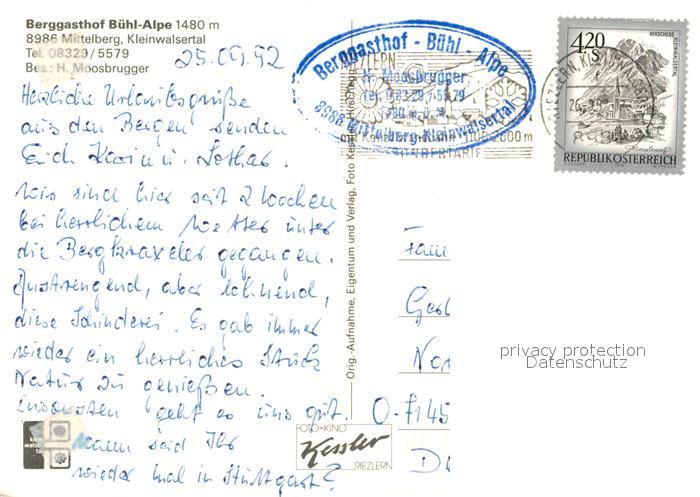 Berggasthof Bühl-Alpe 1480 m
8986 Mittelberg, Kleinwalsertal
Tel. 08329/5579
Bes.: H. Moosbrugger
25.09.92
Herzliche Urlaubsgrüße
aus den Bergen senden
Euch Karin u. Lothar.
Wir sind hier seit 2 Wochen
bei herrlichem Wetter unter
die Bergkraxeler gegangen.
Anstrengend, aber lohnend,
diese Schinderei. Es gab immer
wieder ein herrliches Stück
Natur zu genießen.
Ansonsten geht es uns gut.
Wann seid Ihr
wieder mal in Stuttgart?
Orig.-Aufnahme, Eigentum und Verlag, Foto Kessler
Berggasthof - Bühl - Alpe
H. Moosbrugger
Tel. 08329/5579
8986 Mittelberg-Kleinwalsertal
2000 m
4.20
S
HIRSCHEGG
KLEINWALSERTAL
REPUBLIK ÖSTERREICH
Fam
Gerl
Nor
O-7145
privacy protection
Datenschutz
FOTO+KINO
Kessler
RIEZLERN